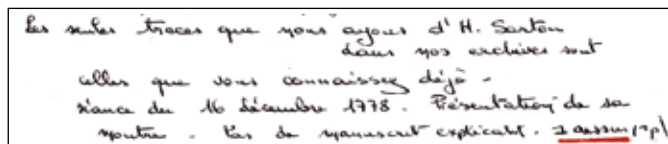 Les seules traces que nous ayons d'H. Sarton
dans nos archives sont
celles que vous connaissez déjà -
séance du 16 décembre 1778. Présentation de sa
montre. Pas de manuscrit explicatif. 1 dessin